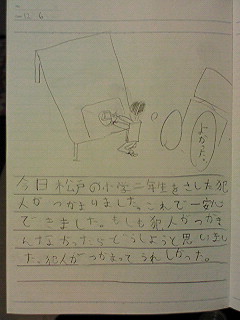 12 6
よかった。
今日松戸の小学二年生をさした犯
人がつかまりました。これで一安心
できました。もしも犯人がつかま
んなかったらどうしようと思いまし
た。犯人がつかまってうれしかった。